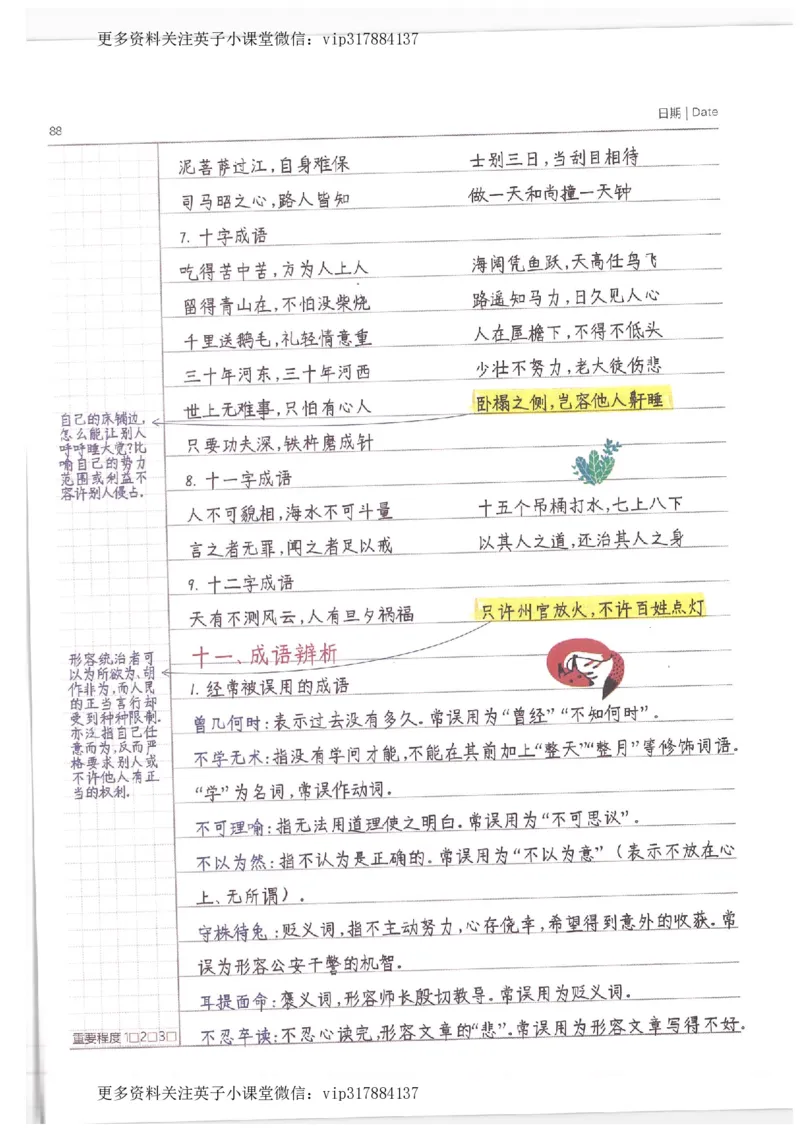 更多资料关注英子小课堂微信：vip317884137
日期 | Date
88
泥菩萨过江，自身难保 士别三日，当刮目相待
司马昭之心，路人皆知 做一天和尚撞一天钟
7. 十字成语
吃得苦中苦，方为人上人 海阔凭鱼跃，天高任鸟飞
留得青山在，不怕没柴烧 路遥知马力，日久见人心
千里送鹅毛，礼轻情意重 人在屋檐下，不得不低头
三十年河东，三十年河西 少壮不努力，老大徒伤悲
世上无难事，只怕有心人 卧榻之侧，岂容他人鼾睡
只要功夫深，铁杵磨成针
自己的床铺边，
怎么能让别人
呼呼睡大觉？比
喻自己的势力
范围或利益不
容许别人侵占。
8. 十一字成语
人不可貌相，海水不可斗量 十五个吊桶打水，七上八下
言之者无罪，闻之者足以戒 以其人之道，还治其人之身
9. 十二字成语
天有不测风云，人有旦夕祸福 只许州官放火，不许百姓点灯
形容统治者可
以为所欲为、胡
作非为，而人民
的正当言行却
受到种种限制.
亦泛指自己任
意而为，反而严
格要求别人或
不许他人有正
当的权利.
十一、成语辨析
1. 经常被误用的成语
曾几何时：表示过去没有多久。常误用为“曾经”“不知何时”.
不学无术：指没有学问才能，不能在其前加上“整天”“整月”等修饰词语.
“学”为名词，常误作动词.
不可理喻：指无法用道理使之明白.常误用为“不可思议”.
不以为然：指不认为是正确的.常误用为“不以为意”（表示不放在心
上、无所谓）.
守株待兔：贬义词，指不主动努力，心存侥幸，希望得到意外的收获.常
误为形容公安干警的机智.
耳提面命：褒义词，形容师长殷切教导.常误用为贬义词.
不忍卒读：不忍心读完，形容文章的“悲”.常误用为形容文章写得不好.
重要程度 1□2□3□
更多资料关注英子小课堂微信：vip317884137